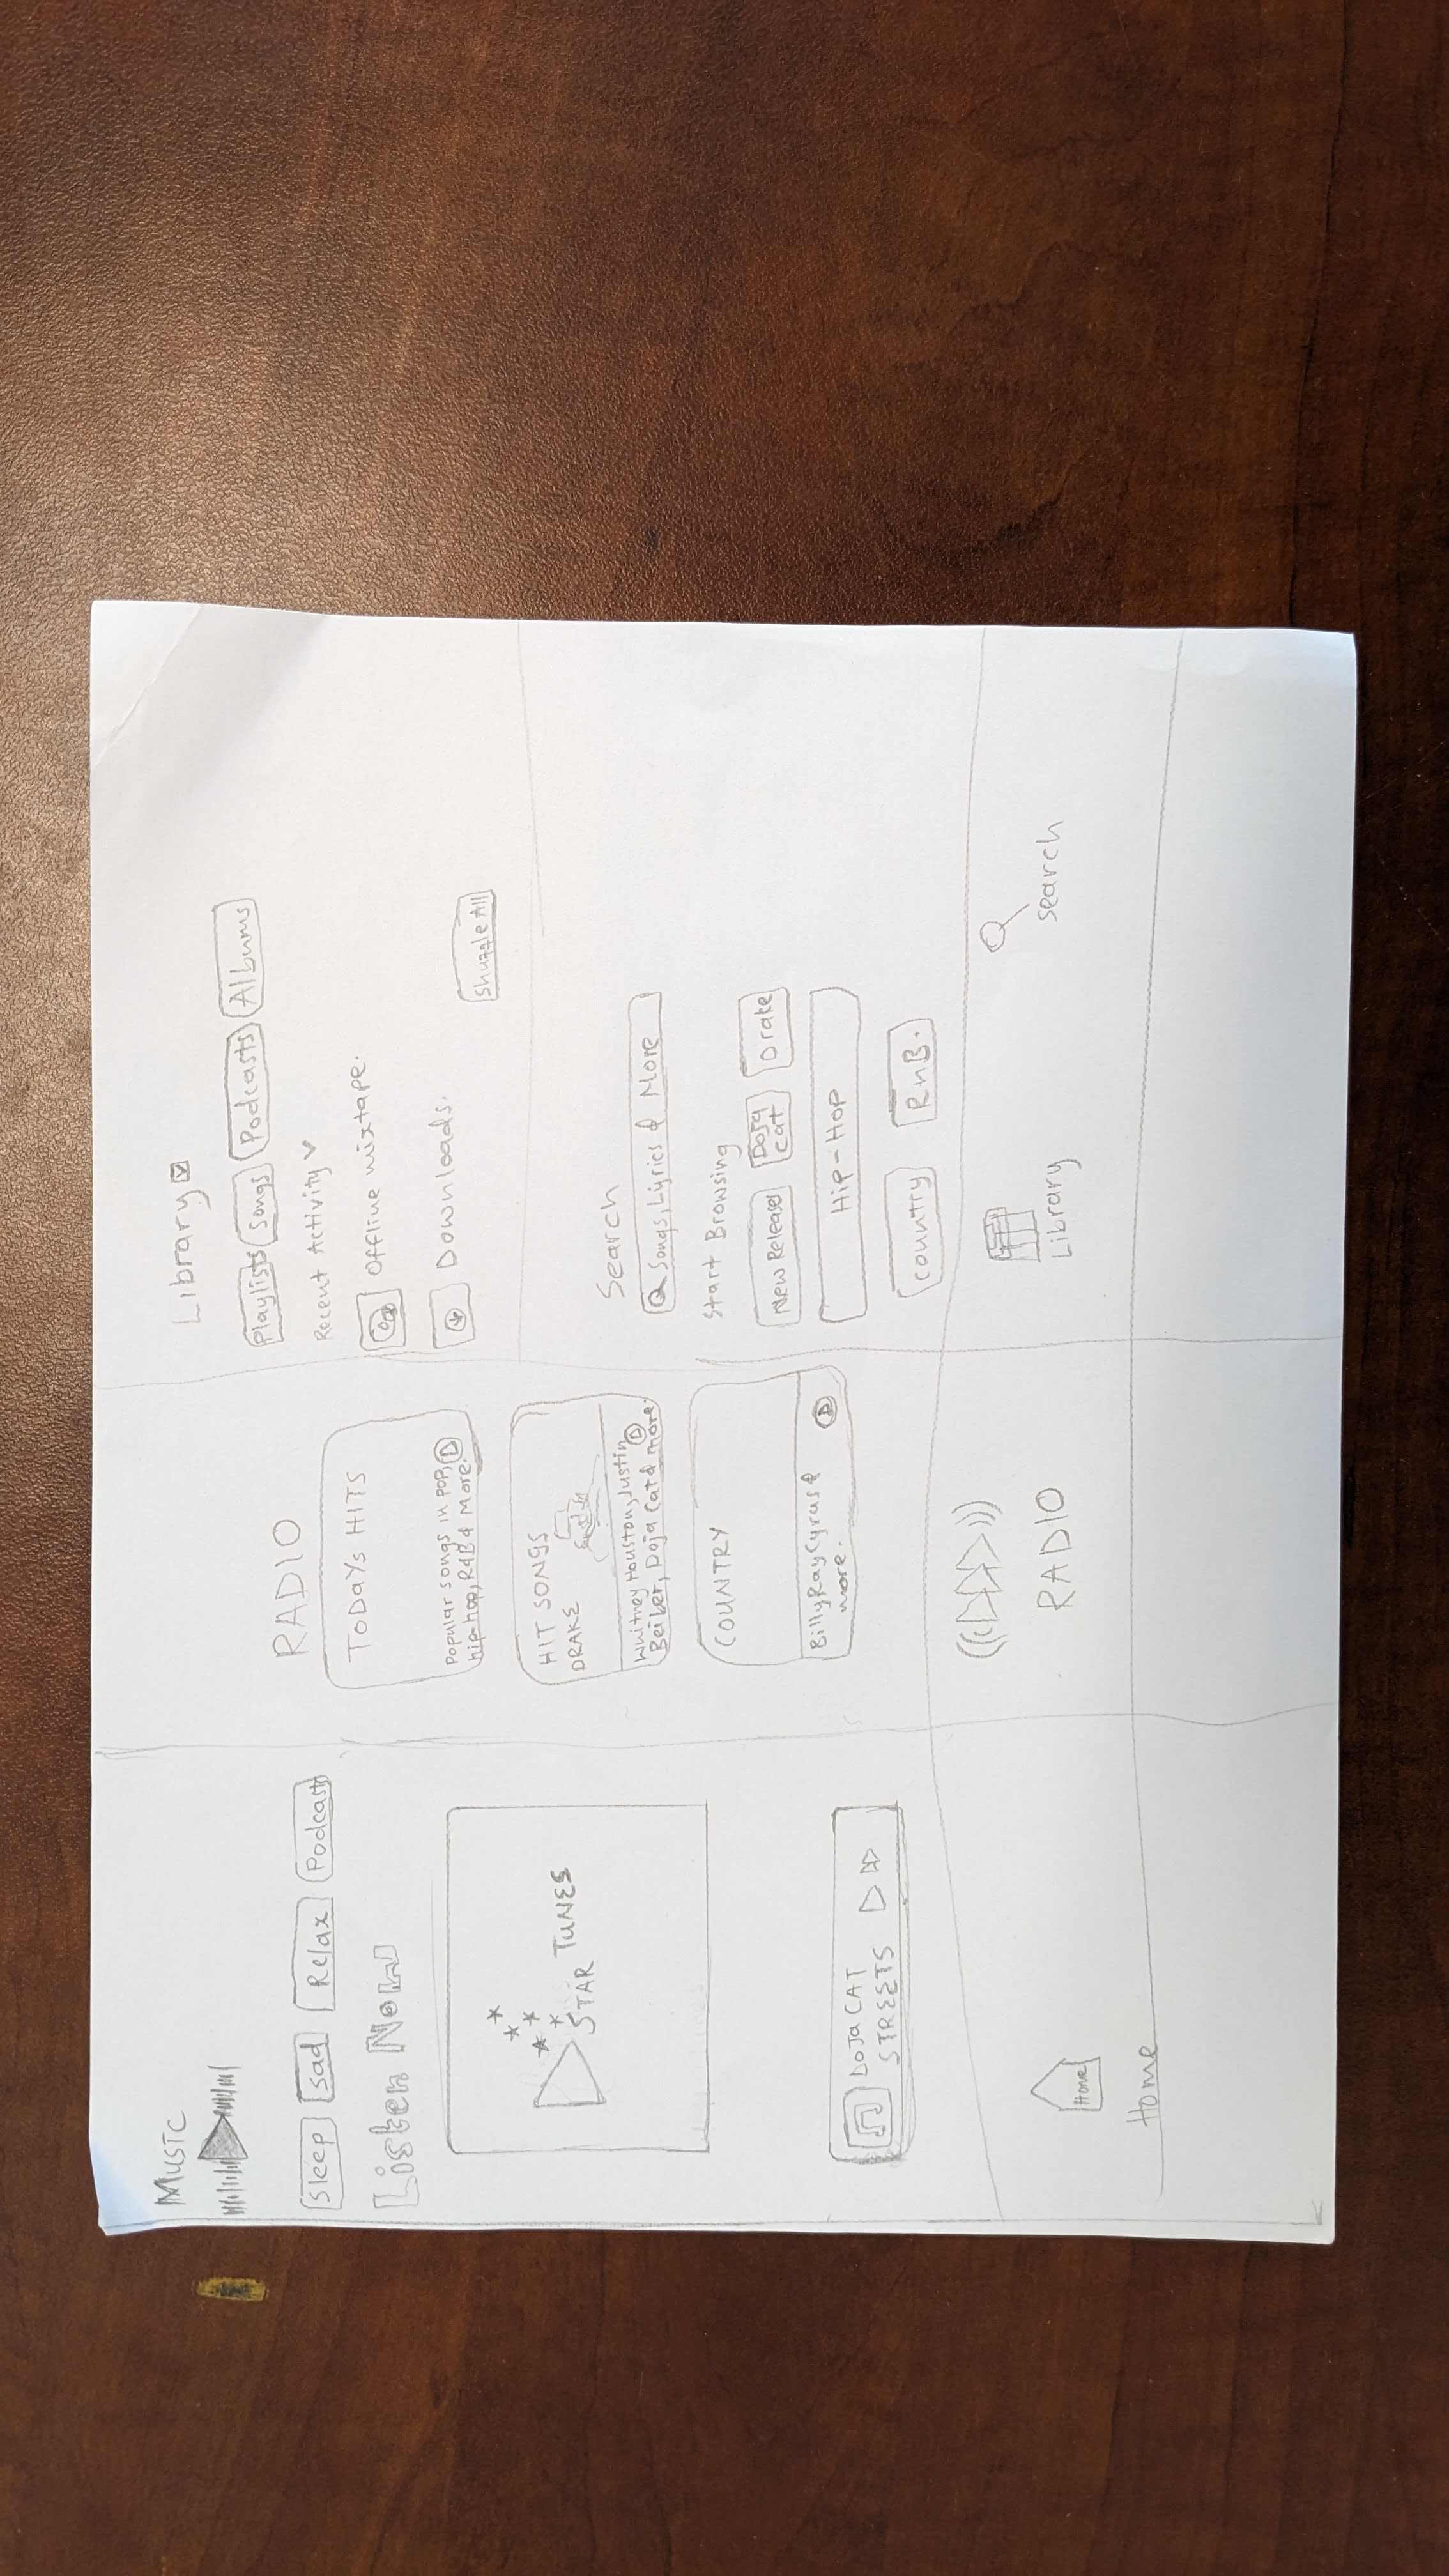 MUSIC
Sleep Sad Relax Podcast
Listen Now
STAR TUNES
DOJA CAT
STREETS
RADIO
TODAYS HITS
Popular songs in POP,
hip-hop, R&B & More.
HIT SONGS
DRAKE
Whitney Houston, Justin
Beiber, Doja Cat & more.
COUNTRY
Billy Ray Cyrus &
more.
Library
Playlists Songs Podcasts Albums
Recent Activity
Offline mixtape.
Downloads.
Shuffle All
Search
Songs, Lyrics & More
Start Browsing
New Release Doja Cat Drake
Hip-Hop
Country RnB.
Home
Home
RADIO
Library
search